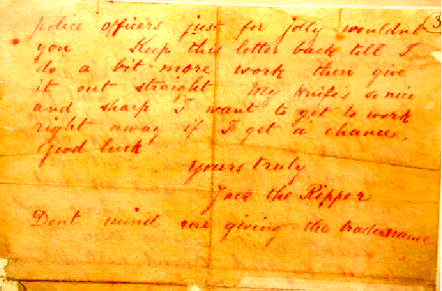 police officers just for jolly wouldnt
you Keep this letter back till I
do a bit more work then give
it out straight My knife's so nice
and sharp I want to get to work
right away if I get a chance.
Good luck
yours truly
Jack the Ripper
Dont mind me giving the trade name